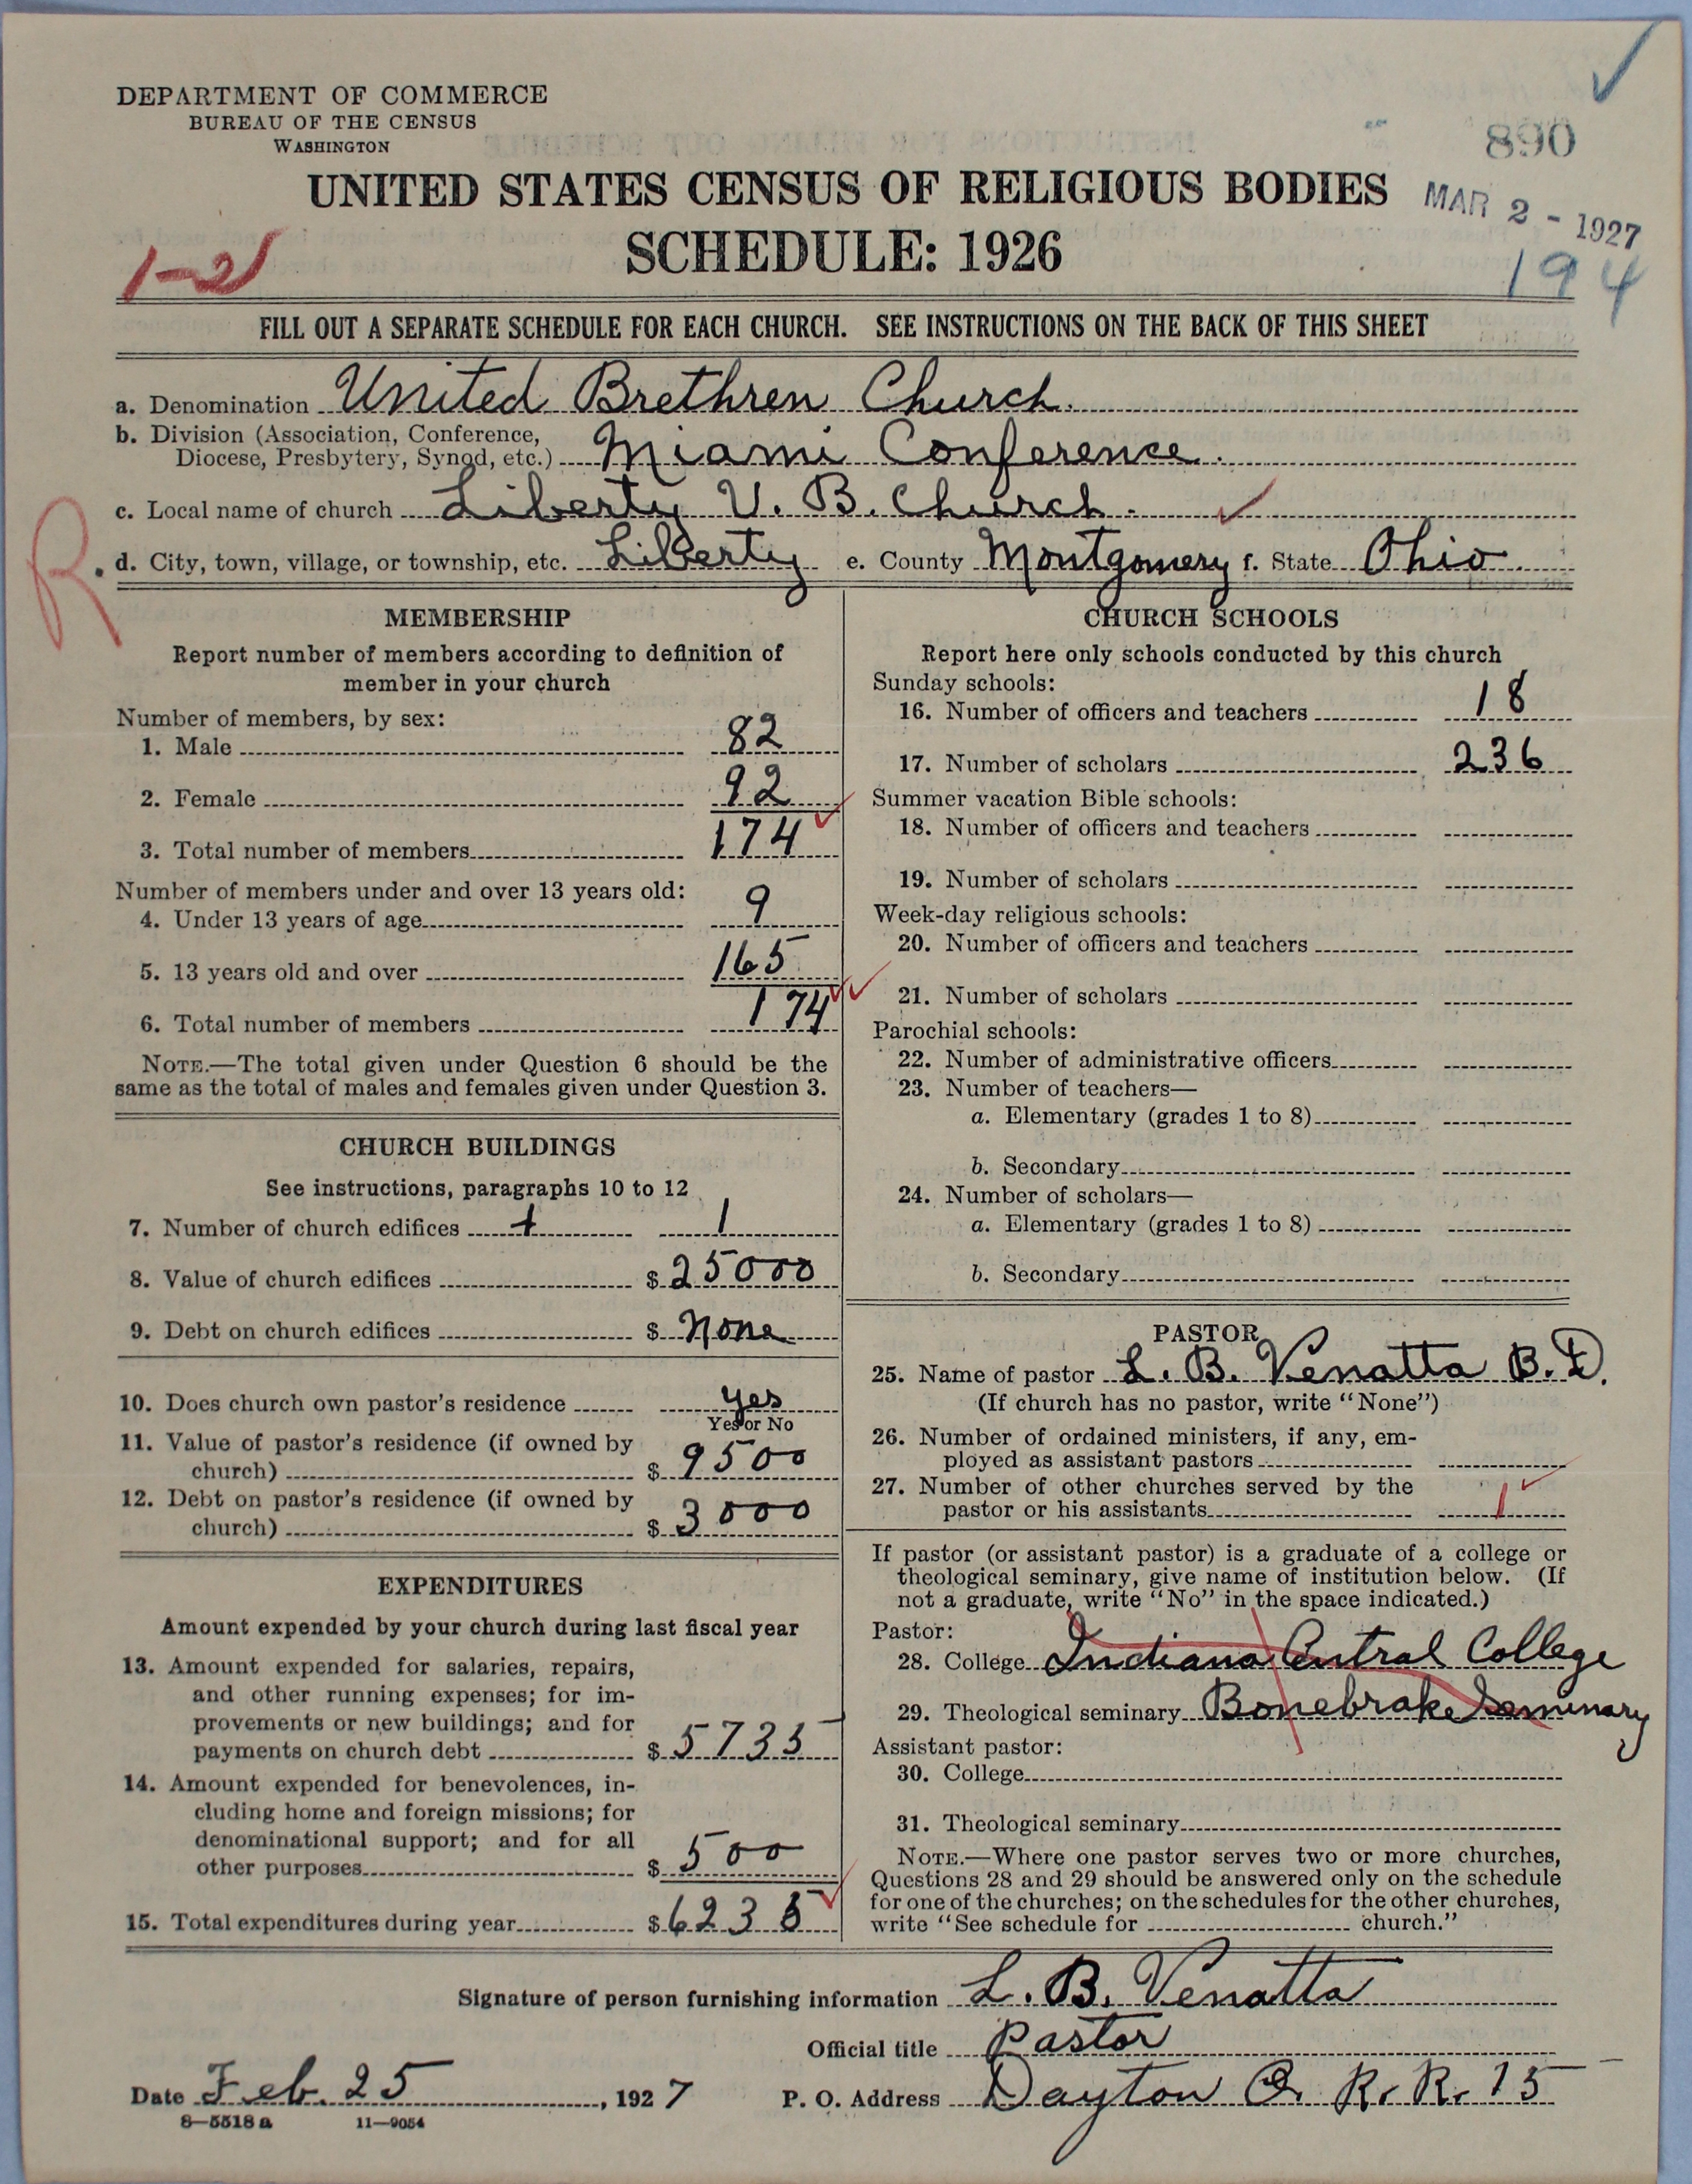 DEPARTMENT OF COMMERCE
BUREAU OF THE CENSUS
WASHINGTON
890
UNITED STATES CENSUS OF RELIGIOUS BODIES
MAR 2 - 1927
SCHEDULE: 1926
1-2
194
FILL OUT A SEPARATE SCHEDULE FOR EACH CHURCH. SEE INSTRUCTIONS ON THE BACK OF THIS SHEET
a. Denomination United Brethren Church.
b. Division (Association, Conference,
Diocese, Presbytery, Synod, etc.) Miami Conference.
c. Local name of church Liberty U. B. Church.
R
d. City, town, village, or township, etc. Liberty e. County Montgomery f. State Ohio.
MEMBERSHIP
Report number of members according to definition of
member in your church
Number of members, by sex:
1. Male 82
2. Female 92
3. Total number of members 174
Number of members under and over 13 years old:
4. Under 13 years of age 9
5. 13 years old and over 165
6. Total number of members 174
NOTE.—The total given under Question 6 should be the
same as the total of males and females given under Question 3.
CHURCH BUILDINGS
See instructions, paragraphs 10 to 12
7. Number of church edifices 1 1
8. Value of church edifices $ 25000
9. Debt on church edifices $ None
10. Does church own pastor's residence yes
Yes or No
11. Value of pastor's residence (if owned by
church) $ 9500
12. Debt on pastor's residence (if owned by
church) $ 3000
EXPENDITURES
Amount expended by your church during last fiscal year
13. Amount expended for salaries, repairs,
and other running expenses; for im-
provements or new buildings; and for
payments on church debt $ 5735
14. Amount expended for benevolences, in-
cluding home and foreign missions; for
denominational support; and for all
other purposes $ 500
15. Total expenditures during year $ 6235
CHURCH SCHOOLS
Report here only schools conducted by this church
Sunday schools:
16. Number of officers and teachers 18
17. Number of scholars 236
Summer vacation Bible schools:
18. Number of officers and teachers
19. Number of scholars
Week-day religious schools:
20. Number of officers and teachers
21. Number of scholars
Parochial schools:
22. Number of administrative officers
23. Number of teachers—
a. Elementary (grades 1 to 8)
b. Secondary
24. Number of scholars—
a. Elementary (grades 1 to 8)
b. Secondary
PASTOR
25. Name of pastor L. B. Venatta B. D.
(If church has no pastor, write "None")
26. Number of ordained ministers, if any, em-
ployed as assistant pastors
27. Number of other churches served by the
pastor or his assistants 1
If pastor (or assistant pastor) is a graduate of a college or
theological seminary, give name of institution below. (If
not a graduate, write "No" in the space indicated.)
Pastor:
28. College Indiana Central College
29. Theological seminary Bonebrake Seminary
Assistant pastor:
30. College
31. Theological seminary
NOTE.—Where one pastor serves two or more churches,
Questions 28 and 29 should be answered only on the schedule
for one of the churches; on the schedules for the other churches,
write "See schedule for church."
Signature of person furnishing information L. B. Venatta
Official title Pastor
Date Feb. 25, 1927 P. O. Address Dayton O. R. R. 15
8—5518a 11—9054